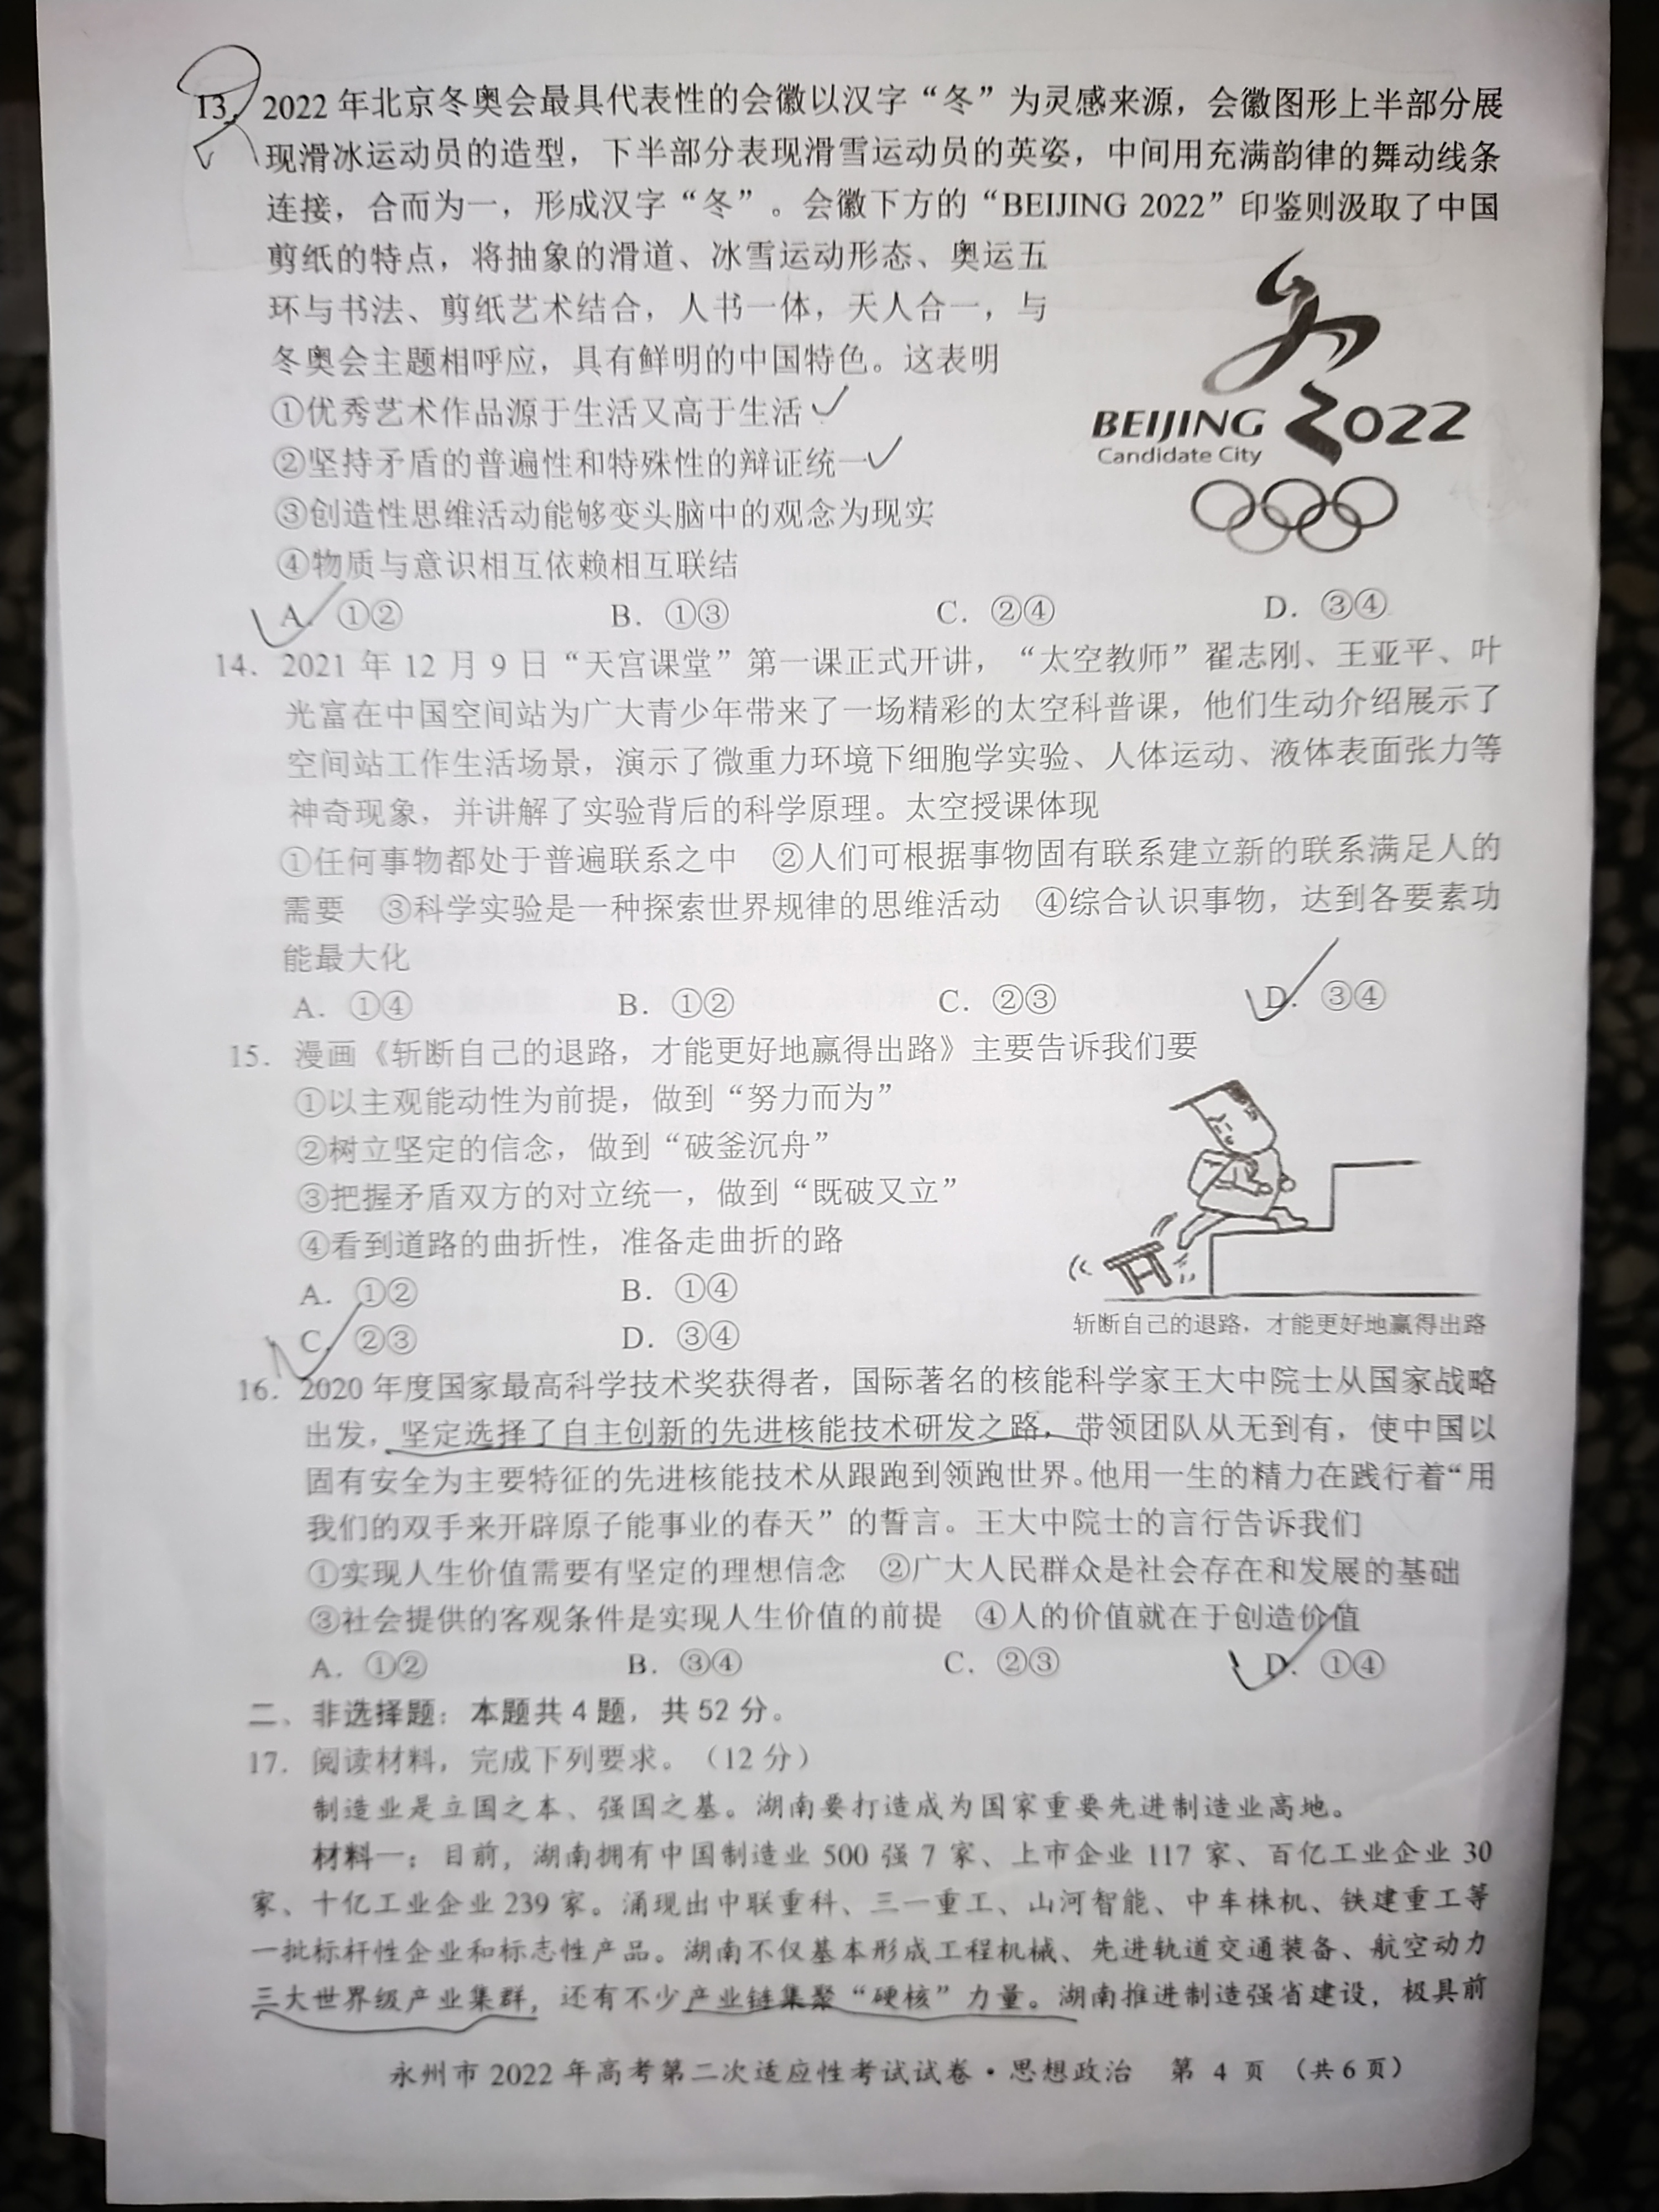 13. 2022年北京冬奥会最具代表性的会徽以汉字“冬”为灵感来源，会徽图形上半部分展
现滑冰运动员的造型，下半部分表现滑雪运动员的英姿，中间用充满韵律的舞动线条
连接，合而为一，形成汉字“冬”。会徽下方的“BEIJING 2022”印鉴则汲取了中国
剪纸的特点，将抽象的滑道、冰雪运动形态、奥运五
环与书法、剪纸艺术结合，人书一体，天人合一，与
冬奥会主题相呼应，具有鲜明的中国特色。这表明
①优秀艺术作品源于生活又高于生活
②坚持矛盾的普遍性和特殊性的辩证统一
③创造性思维活动能够变头脑中的观念为现实
④物质与意识相互依赖相互联结
BEIJING 2022
Candidate City
A. ①② B. ①③ C. ②④ D. ③④
14. 2021年12月9日“天宫课堂”第一课正式开讲，“太空教师”翟志刚、王亚平、叶
光富在中国空间站为广大青少年带来了一场精彩的太空科普课，他们生动介绍展示了
空间站工作生活场景，演示了微重力环境下细胞学实验、人体运动、液体表面张力等
神奇现象，并讲解了实验背后的科学原理。太空授课体现
①任何事物都处于普遍联系之中 ②人们可根据事物固有联系建立新的联系满足人的
需要 ③科学实验是一种探索世界规律的思维活动 ④综合认识事物，达到各要素功
能最大化
A. ①④ B. ①② C. ②③ D. ③④
15. 漫画《斩断自己的退路，才能更好地赢得出路》主要告诉我们要
①以主观能动性为前提，做到“努力而为”
②树立坚定的信念，做到“破釜沉舟”
③把握矛盾双方的对立统一，做到“既破又立”
④看到道路的曲折性，准备走曲折的路
A. ①② B. ①④
C. ②③ D. ③④
斩断自己的退路，才能更好地赢得出路
16. 2020年度国家最高科学技术奖获得者，国际著名的核能科学家王大中院士从国家战略
出发，坚定选择了自主创新的先进核能技术研发之路，带领团队从无到有，使中国以
固有安全为主要特征的先进核能技术从跟跑到领跑世界。他用一生的精力在践行着“用
我们的双手来开辟原子能事业的春天”的誓言。王大中院士的言行告诉我们
①实现人生价值需要有坚定的理想信念 ②广大人民群众是社会存在和发展的基础
③社会提供的客观条件是实现人生价值的前提 ④人的价值就在于创造价值
A. ①② B. ③④ C. ②③ D. ①④
二、非选择题：本题共4题，共52分。
17. 阅读材料，完成下列要求。（12分）
制造业是立国之本、强国之基。湖南要打造成为国家重要先进制造业高地。
材料一：目前，湖南拥有中国制造业500强7家、上市企业117家、百亿工业企业30
家、十亿工业企业239家。涌现出中联重科、三一重工、山河智能、中车株机、铁建重工等
一批标杆性企业和标志性产品。湖南不仅基本形成工程机械、先进轨道交通装备、航空动力
三大世界级产业集群，还有不少产业链集聚“硬核”力量。湖南推进制造强省建设，极具前
永州市2022年高考第二次适应性考试试卷·思想政治 第4页（共6页）